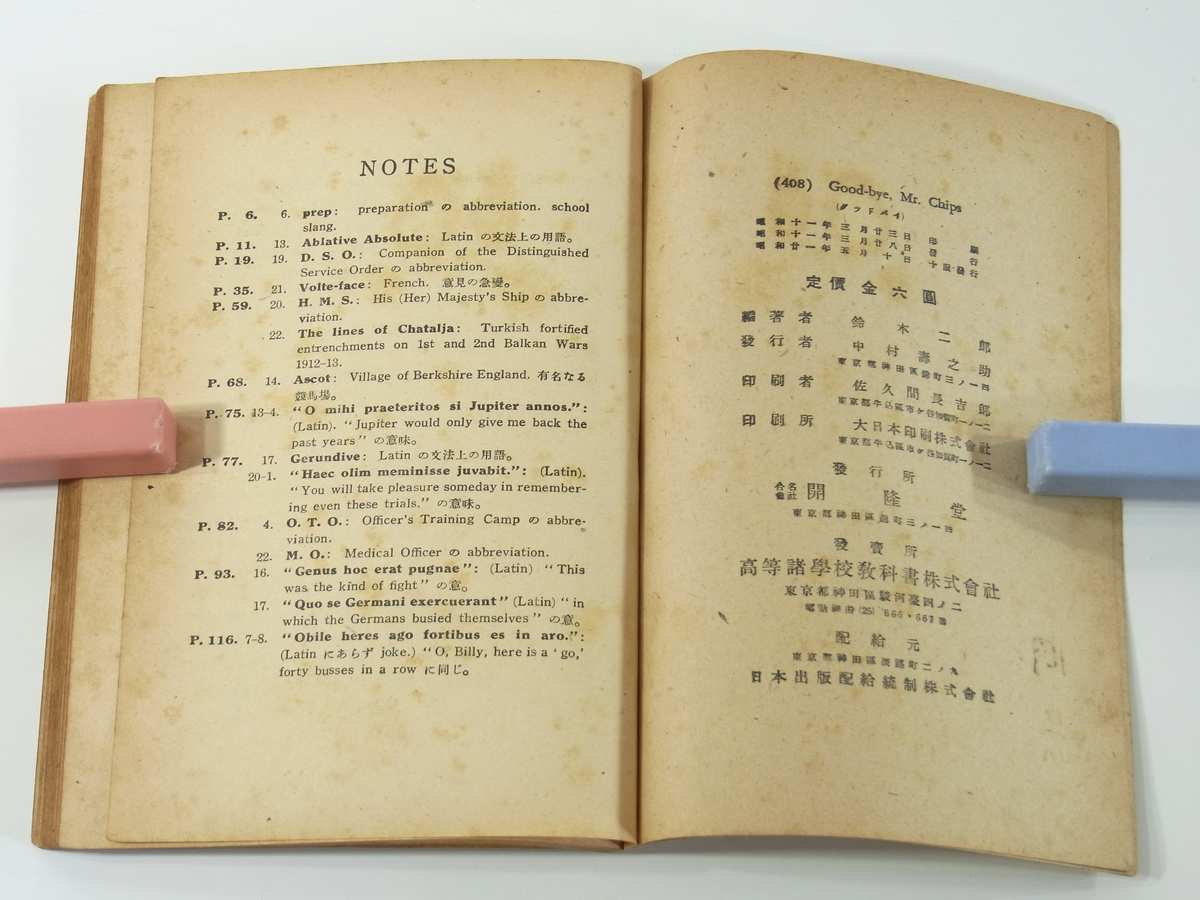 NOTES
P. 6. 6. prep: preparation の abbreviation. school
slang.
P. 11. 13. Ablative Absolute: Latin の文法上の用語。
P. 19. 19. D. S. O.: Companion of the Distinguished
Service Order の abbreviation.
P. 35. 21. Volte-face: French. 意見の急變。
P. 59. 20. H. M. S.: His (Her) Majesty's Ship の abbre-
viation.
22. The lines of Chatalja: Turkish fortified
entrenchments on 1st and 2nd Balkan Wars
1912-13.
P. 68. 14. Ascot: Village of Berkshire England. 有名なる
競馬場。
P. 75. 13-4. "O mihi praeteritos si Jupiter annos.":
(Latin). "Jupiter would only give me back the
past years" の意味。
P. 77. 17. Gerundive: Latin の文法上の用語。
20-1. "Haec olim meminisse juvabit.": (Latin).
"You will take pleasure someday in remember-
ing even these trials." の意味。
P. 82. 4. O. T. O.: Officer's Training Camp の abbre-
viation.
22. M. O.: Medical Officer の abbreviation.
P. 93. 16. "Genus hoc erat pugnae": (Latin) "This
was the kind of fight" の意。
17. "Quo se Germani exercuerant" (Latin) "in
which the Germans busied themselves" の意。
P. 116. 7-8. "Obile heres ago fortibus es in aro.":
(Latin にあらず joke.) "O, Billy, here is a 'go,'
forty busses in a row に同じ。
(408) Good-bye, Mr. Chips
(グッドメイ)
昭和十一年三月廿三日 印刷
昭和十一年三月廿八日 發行
昭和廿一年五月十日 十版發行
定價金六圓
編著者 鈴木二郎
發行者 中村壽之助
東京都神田區錦町三ノ一四
印刷者 佐久間長吉郎
東京都牛込區市ケ谷加賀町一ノ一二
印刷所 大日本印刷株式會社
東京都牛込區市ケ谷加賀町一ノ一二
發行所
合名會社 開隆堂
東京都神田區錦町三ノ一四
發賣所
高等諸學校教科書株式會社
東京都神田區駿河臺四ノ二
電話神田(25) 666・667番
配給元
東京都神田區淡路町二ノ九
日本出版配給統制株式會社